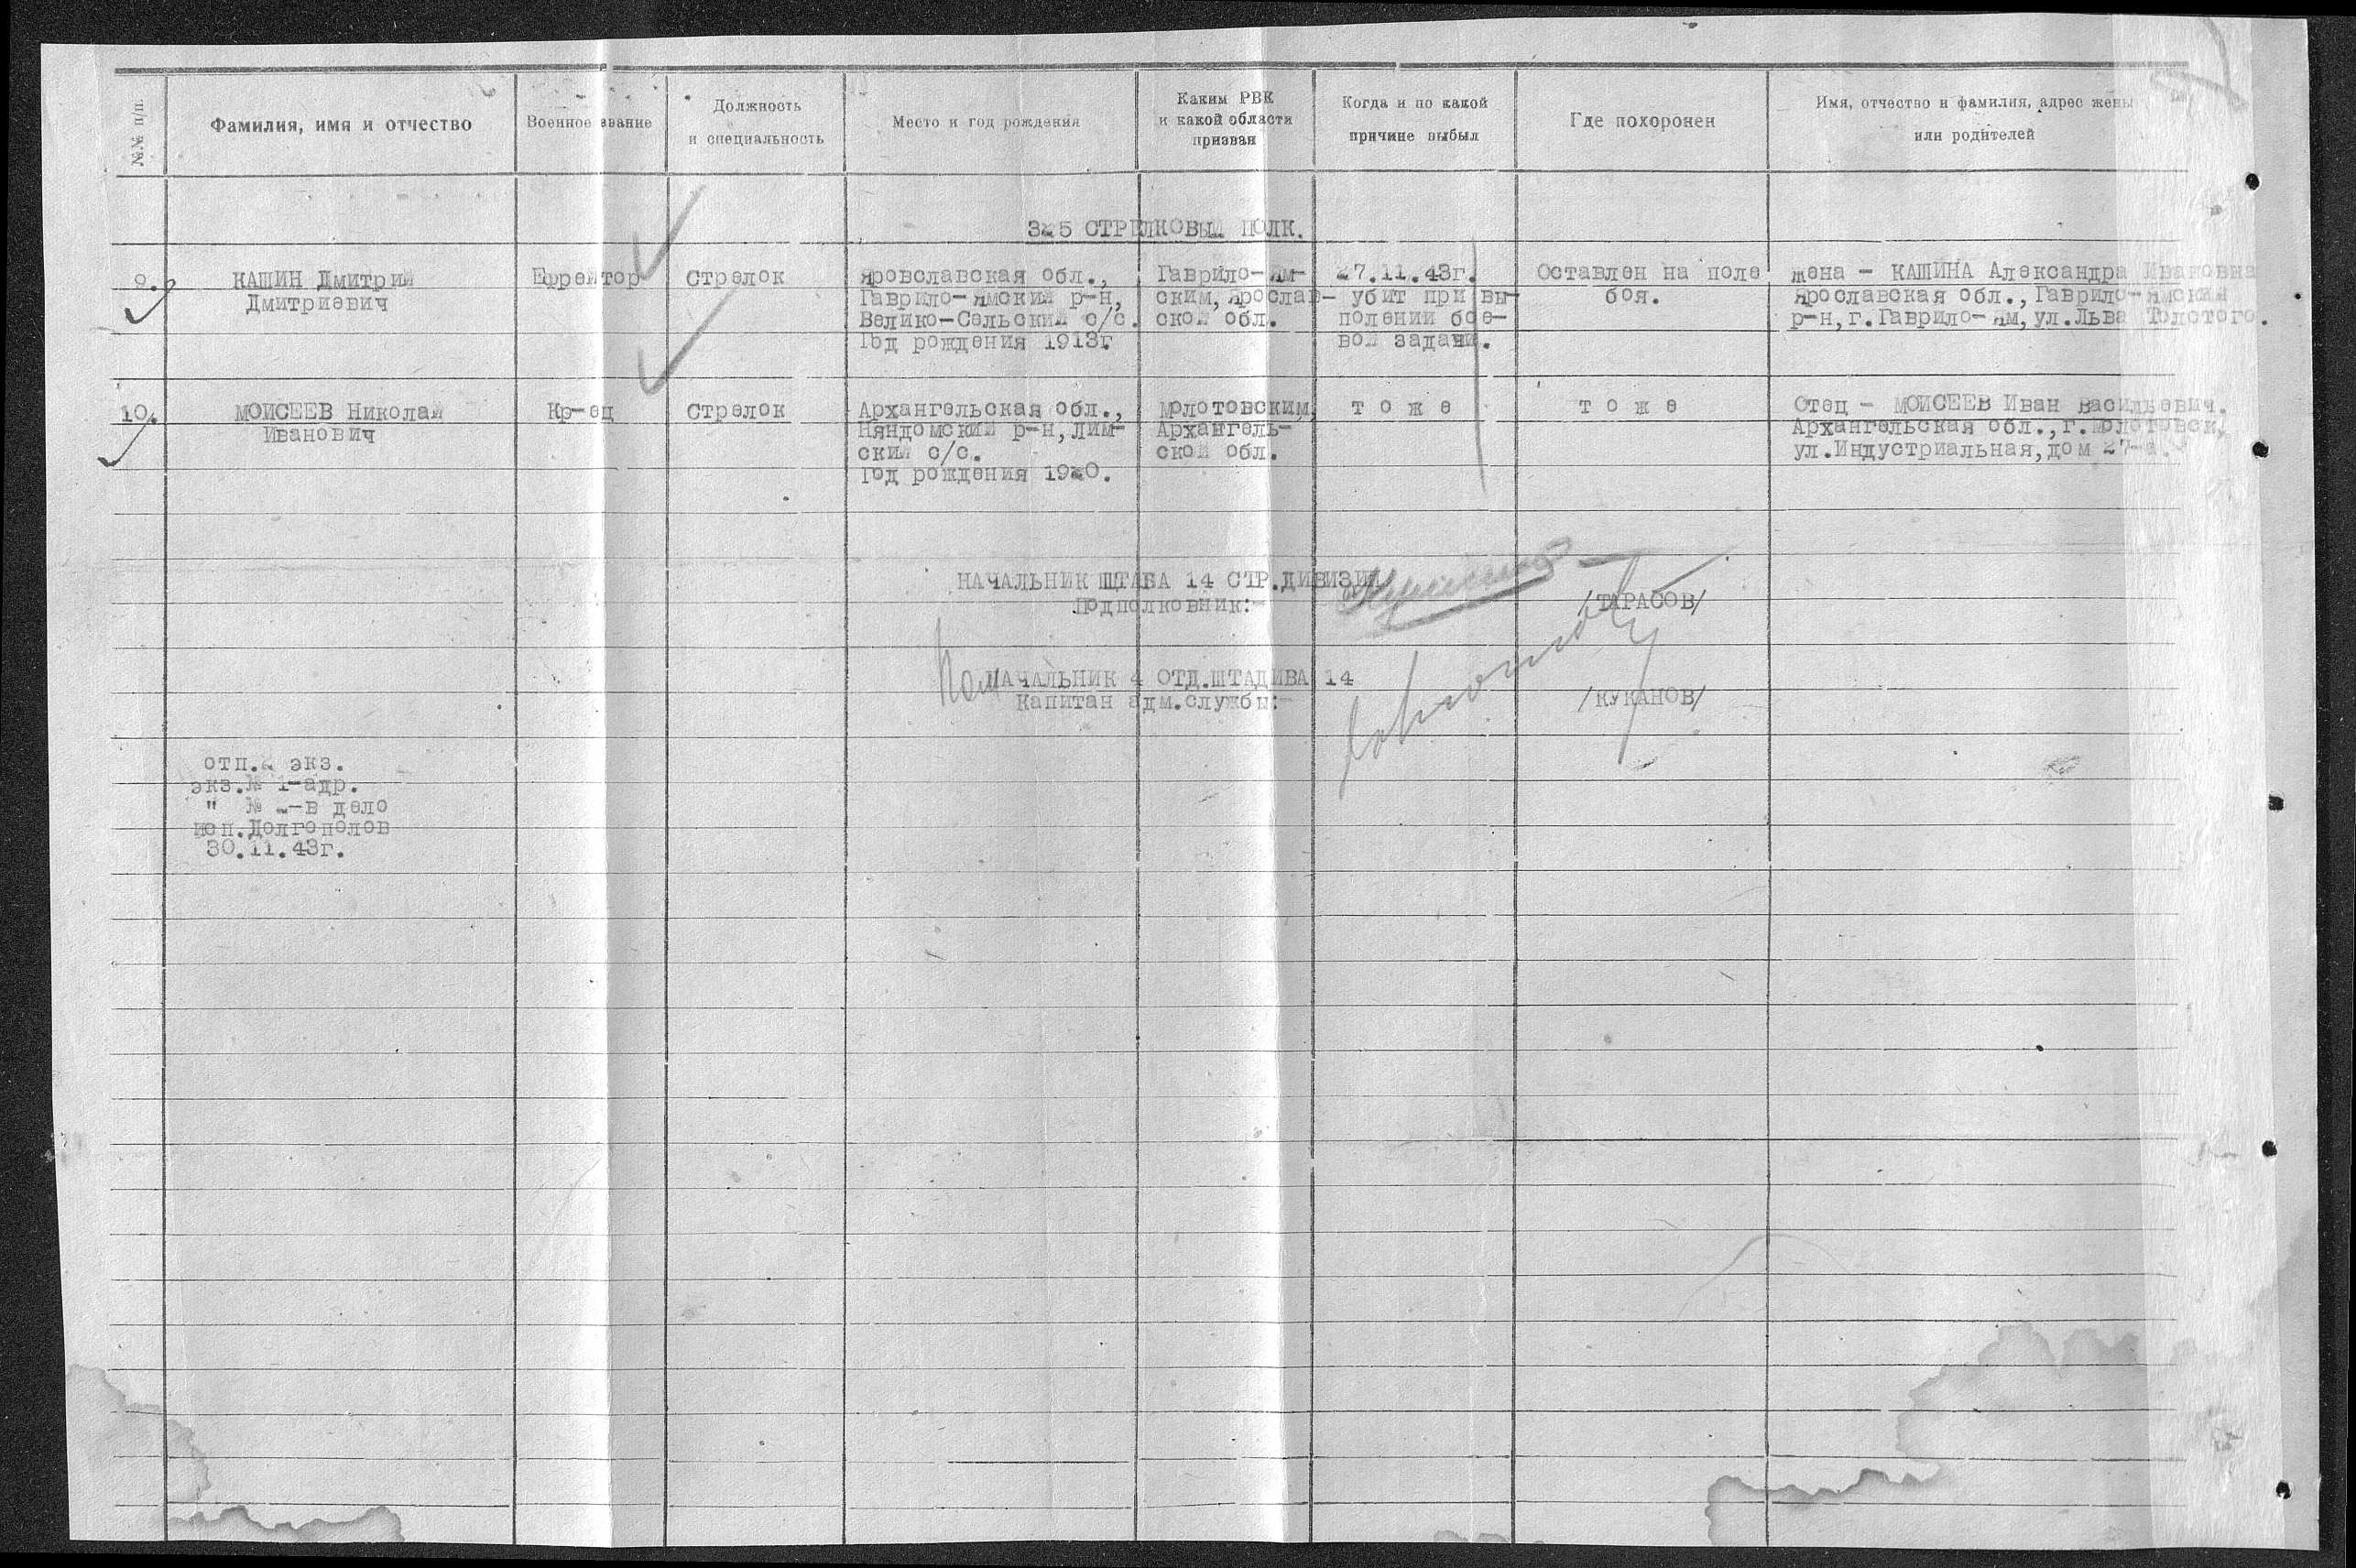 №№ п/п.
Фамилия, имя и отчество
Военное звание
Должность
и специальность
Место и год рождения
Каким РВК
и какой области
призван
Когда и по какой
причине выбыл
Где похоронен
Имя, отчество и фамилия, адрес жены
или родителей
325 СТРЕЛКОВЫЙ ПОЛК.
9.
КАШИН Дмитрий
Дмитриевич
Ефрейтор
Стрелок
Яровславская обл.,
Гаврило-Ямский р-н,
Велико-Сельский с/с.
Год рождения 1913г.
Гаврило-Ям-
ским, Ярослав-
ской обл.
27.11.43г.
убит при вы-
полении бое-
вой задачи.
Оставлен на поле
боя.
жена - КАШИНА Александра Ивановна
Ярославская обл., Гаврило-Ямский
р-н, г.Гаврило-Ям, ул.Льва Толстого.
10.
МОИСЕЕВ Николай
Иванович
Кр-ец
Стрелок
Архангельская обл.,
Няндомский р-н, Лим-
ский с/с.
Год рождения 1920.
Молотовским,
Архангель-
ской обл.
т о ж е
т о ж е
Отец - МОИСЕЕВ Иван Васильевич.
Архангельская обл., г.Молотовск,
ул.Индустриальная, дом
НАЧАЛЬНИК ШТАБА 14 СТР.ДИВИЗИИ
Подполковник:-
/ТАРАСОВ/
Пом
НАЧАЛЬНИК 4 ОТД.ШТАДИВА 14
Капитан адм.службы:-
/КУКАНОВ/
отп.2 экз.
экз.№ 1-адр.
" № 2-в дело
исп.Долгополов
30.11.43г.